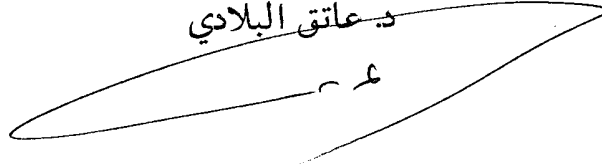 د. عاتق البلادي